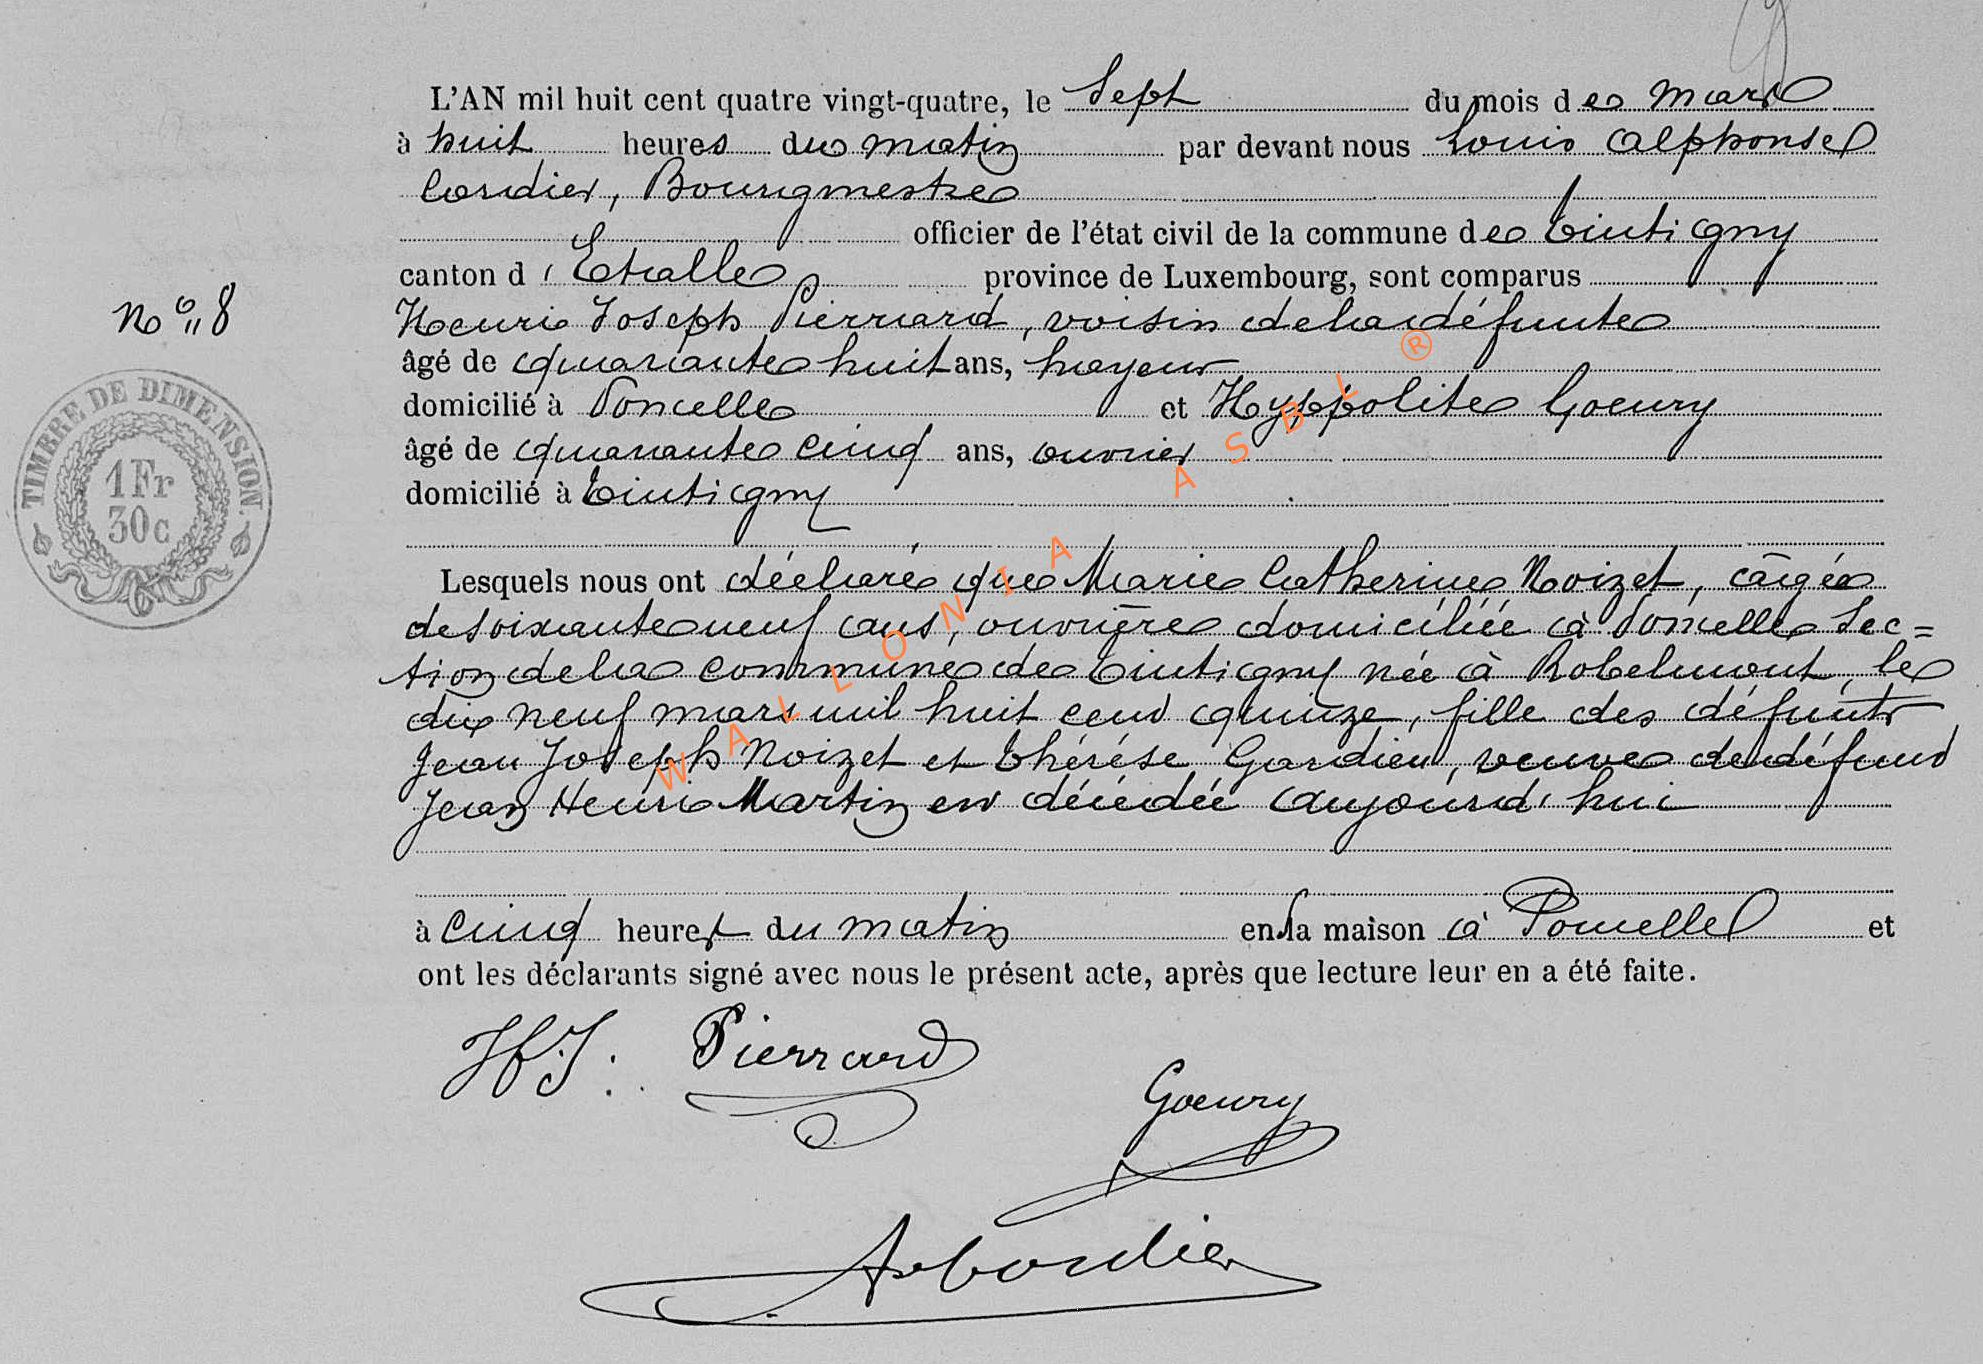 L'AN mil huit cent quatre vingt-quatre, le Sept du mois de mars
à huit heures du matin par devant nous Louis Alphonse
Cordier, Bourgmestre
officier de l'état civil de la commune de Tintigny
canton d'Etalle province de Luxembourg, sont comparus
N° 8
Henri Joseph Pierrard, voisin de la défunte
âgé de quarante huit ans,
domicilié à Poncelle et Hyppolite Goeury
âgé de quarante cinq ans, ouvrier
domicilié à Tintigny
TIMBRE DE DIMENSION.
1 Fr
30c
Lesquels nous ont déclaré que Marie Catherine Noizet, âgée
de soixante neuf ans, ouvrière domiciliée à Poncelle Sec=
tion de la commune de Tintigny née à Robelmont, le
dix neuf mars mil huit cent quinze, fille des défunts
Jean Joseph Noizet et Thérése Gardien, veuve de défunt
Jean Henri Martin est décédée aujourd'hui
à cinq heures du matin en sa maison à Poncelle et
ont les déclarants signé avec nous le présent acte, après que lecture leur en a été faite.
HJ. Pierrard
Goeury
Cordier
WALLONIA ASBL ®